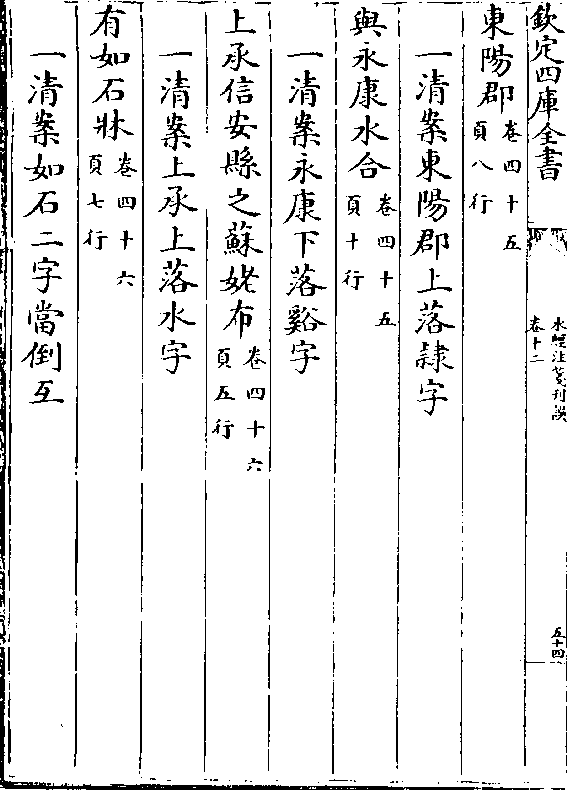 欽定四庫全書
水經注箋刊誤
卷十二
五十四
東陽郡卷四十五
頁八行
一清案東陽郡上落隷字
與永康水合卷四十五
頁十行
一清案永康下落谿字
上承信安縣之蘇姥布卷四十六
頁五行
一清案上承上落水字
有如石牀卷四十六
頁七行
一清案如石二字當倒互